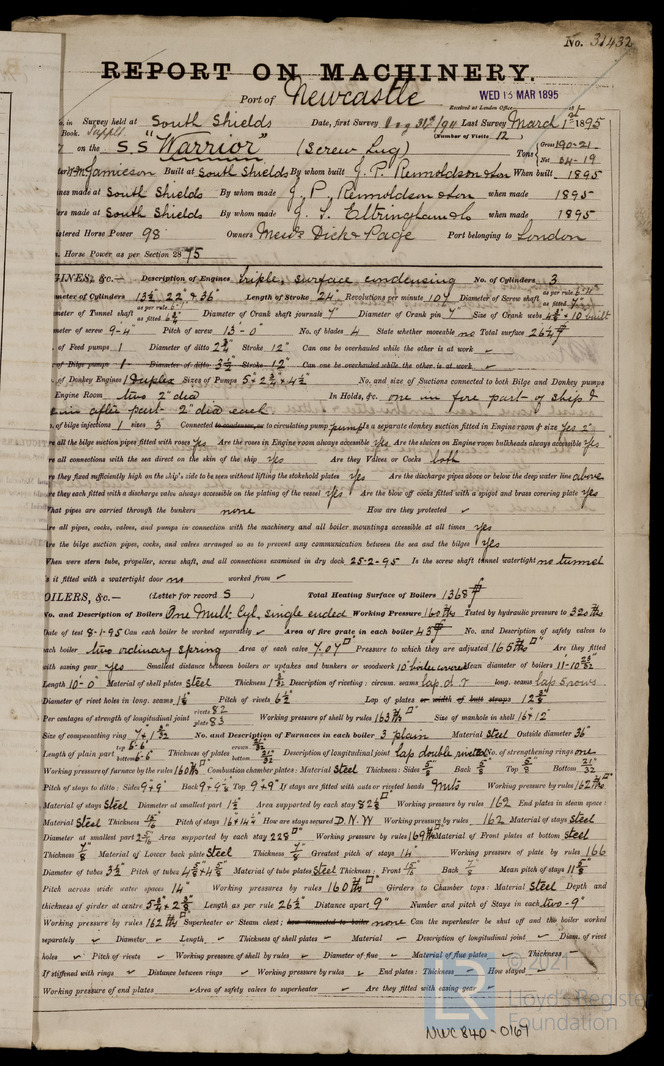 No. 31432
REPORT ON MACHINERY.
Port of Newcastle
WED 13 MAR 1895
Received at London Office
No. in Survey held at South Shields Date, first Survey Aug 31st/94 Last Survey March 1st 1895
Book. Suppt
(Number of Visits 12)
on the S.S "Warrior" (Screw Tug) Tons Gross 190-21
Net 04-19
Wm Jamieson Built at South Shields By whom built J. P. Rennoldson & Son When built 1895
ines made at South Shields By whom made J. P. Rennoldson & Son when made 1895
ers made at South Shields By whom made J. T. Eltringham & Co when made 1895
istered Horse Power 98 Owners Mess'rs Dick & Page Port belonging to London
. Horse Power as per Section 28 75
GINES, &c.— Description of Engines triple, surface condensing No. of Cylinders 3
meter of Cylinders 13½ 22" & 36" Length of Stroke 24 Revolutions per minute 107 Diameter of Screw shaft as per rule as fitted 7"
meter of Tunnel shaft as per rule as fitted Diameter of Crank shaft journals 7" Diameter of Crank pin 7" Size of Crank webs 4⅝ × 10 built
meter of screw 9-4" Pitch of screw 13-0" No. of blades 4 State whether moveable no Total surface 26
of Feed pumps 1 Diameter of ditto 2¾ Stroke 12" Can one be overhauled while the other is at work ✓
of Bilge pumps 1 Diameter of ditto 3½ Stroke 12" Can one be overhauled while the other is at work ✓
of Donkey Engines 1 Duplex Sizes of Pumps 5" × 2¾" × 4½" No. and size of Suctions connected to both Bilge and Donkey pumps
Engine Room two 2" dia In Holds, &c. one in fore part of ship &
in after part 2" dia each
o. of bilge injections 1 sizes 3" Connected to condenser, or to circulating pump pump Is a separate donkey suction fitted in Engine room & size Yes 2"
re all the bilge suction pipes fitted with roses yes Are the roses in Engine room always accessible yes Are the sluices on Engine room bulkheads always accessible yes
re all connections with the sea direct on the skin of the ship yes Are they Valves or Cocks both
re they fixed sufficiently high on the ship's side to be seen without lifting the stokehold plates yes Are the discharge pipes above or below the deep water line above
re they each fitted with a discharge valve always accessible on the plating of the vessel yes Are the blow off cocks fitted with a spigot and brass covering plate yes
What pipes are carried through the bunkers none How are they protected ✓
re all pipes, cocks, valves, and pumps in connection with the machinery and all boiler mountings accessible at all times yes
re the bilge suction pipes, cocks, and valves arranged so as to prevent any communication between the sea and the bilges yes
When were stern tube, propeller, screw shaft, and all connections examined in dry dock 25-2-95 Is the screw shaft tunnel watertight no tunnel
is it fitted with a watertight door no worked from ✓
OILERS, &c.— (Letter for record S) Total Heating Surface of Boilers 1368
No. and Description of Boilers One Mult. Cyl. single ended Working Pressure 160 lbs Tested by hydraulic pressure to 320 lbs
Date of test 8-1-95 Can each boiler be worked separately ✓ Area of fire grate in each boiler 43 No. and Description of safety valves to
each boiler two ordinary spring Area of each valve 7.07 Pressure to which they are adjusted 165 lbs Are they fitted
with easing gear yes Smallest distance between boilers or uptakes and bunkers or woodwork 10" Mean diameter of boilers 11-10
Length 10-0" Material of shell plates Steel Thickness 1 Description of riveting: circum. seams lap. d r long. seams lap 5 rows
Diameter of rivet holes in long. seams Pitch of rivets 6½ Lap of plates or width of butt straps 12
Per centages of strength of longitudinal joint rivets 82 plate 83 Working pressure of shell by rules 163 lbs Size of manhole in shell 16 × 12"
Size of compensating ring No. and Description of Furnaces in each boiler 3 plain Material Steel Outside diameter 36"
Length of plain part top 6-6 bottom 6-6" Thickness of plates crown bottom Description of longitudinal joint lap double rivetted No. of strengthening rings one
Working pressure of furnace by the rules 160 lbs Combustion chamber plates: Material Steel Thickness: Sides ⅝ Back ⅝ Top ⅝ Bottom
Pitch of stays to ditto: Sides 9 × 9" Back 9 × Top 9 × 9" If stays are fitted with nuts or riveted heads nuts Working pressure by rules 162 lbs
Material of stays Steel Diameter at smallest part 1½ Area supported by each stay 82 Working pressure by rules 162 End plates in steam space:
Material Steel Thickness Pitch of stays 16 × 14½ How are stays secured D.N.W Working pressure by rules 162 Material of stays Steel
Diameter at smallest part Area supported by each stay 228 Working pressure by rules 169 lbs Material of Front plates at bottom Steel
Thickness ⅞ Material of Lower back plate Steel Thickness ⅞ Greatest pitch of stays 14" Working pressure of plate by rules 166
Diameter of tubes 3½ Pitch of tubes 4⅝ × 4⅝ Material of tube plates Steel Thickness: Front Back ⅞ Mean pitch of stays 11
Pitch across wide water spaces 14" Working pressures by rules 160 lbs Girders to Chamber tops: Material Steel Depth and
thickness of girder at centre Length as per rule 26½ Distance apart 9" Number and pitch of Stays in each two-9"
Working pressure by rules 162 lbs Superheater or Steam chest; how connected to boiler none Can the superheater be shut off and the boiler worked
separately ✓ Diameter ✓ Length ✓ Thickness of shell plates ✓ Material ✓ Description of longitudinal joint ✓ Diam. of rivet
holes ✓ Pitch of rivets ✓ Working pressure of shell by rules ✓ Diameter of flue ✓ Material of flue plates ✓ Thickness
If stiffened with rings ✓ Distance between rings ✓ Working pressure by rules ✓ End plates: Thickness How stayed
Working pressure of end plates ✓ Area of safety valves to superheater ✓ Are they fitted with easing gear ✓
© 2021
LR
Lloyd's Register
Foundation
NWC840-0167